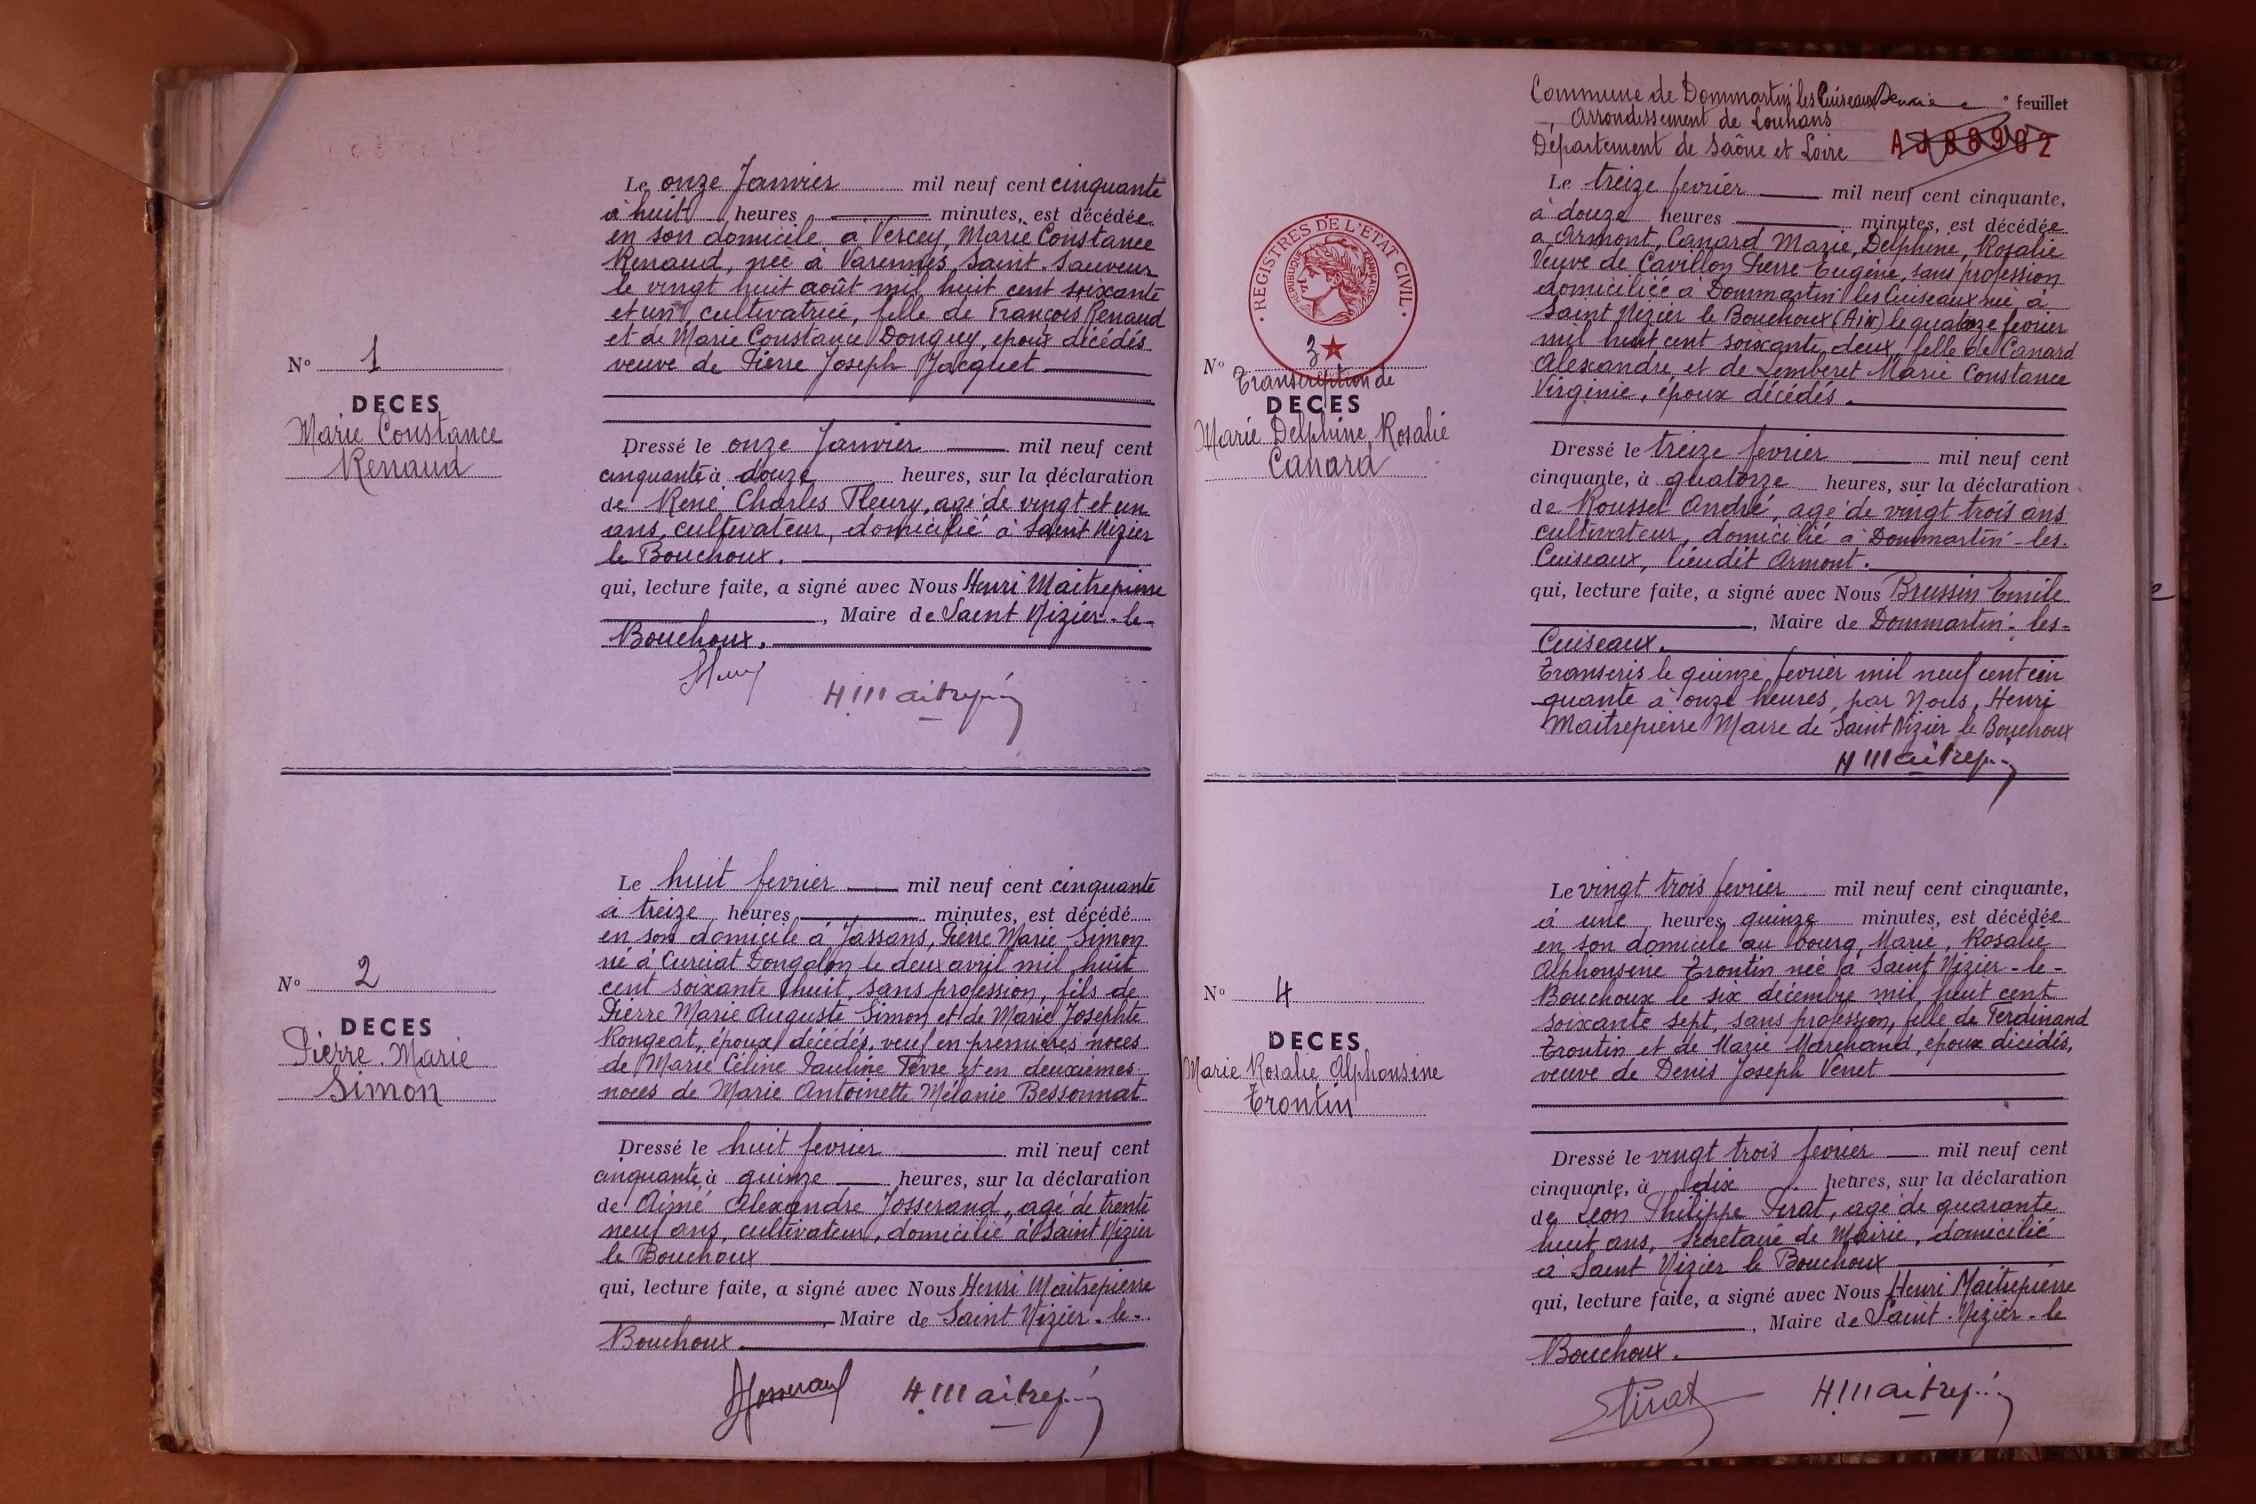 N° 1
DECES
Marie Constance
Renaud
Le onze Janvier mil neuf cent cinquante
à huit heures minutes, est décédée
en son domicile à Vercey, Marie Constance
Renaud, née à Varennes Saint-Sauveur
le vingt huit août mil huit cent soixante
et un, cultivatrice, fille de François Renaud
et de Marie Constance Donguy, époux décédés
veuve de Pierre Joseph Jacquet
Dressé le onze Janvier mil neuf cent
cinquante à douze heures, sur la déclaration
de René Charles Fleury, agé de vingt et un
ans, cultivateur, domicilié à Saint Nizier
le Bouchoux.
qui, lecture faite, a signé avec Nous Henri Maitrepierre
, Maire de Saint Nizier-le-
Bouchoux.
H. Maitrepi
N° 2
DECES
Pierre Marie
Simon
Le huit fevrier mil neuf cent cinquante
à treize heures minutes, est décédé
en son domicile à Jassans, Pierre Marie Simon
né à Curciat Dongalon le deux avril mil huit
cent soixante huit, sans profession, fils de
Pierre Marie Auguste Simon et de Marie Josephte
Rongeat, époux décédés, veuf en premières noces
de Marie Céline Pauline Fèvre et en deuxièmes
noces de Marie Antoinette Mélanie Bessonnat
Dressé le huit fevrier mil neuf cent
cinquante, à quinze heures, sur la déclaration
de Aimé Alexandre Josserand, agé de trente
neuf ans, cultivateur, domicilié à Saint Nizier
le Bouchoux
qui, lecture faite, a signé avec Nous Henri Maitrepierre
, Maire de Saint Nizier-le-
Bouchoux.
Josserand H. Maitrepi
Commune de Dommartin les Cuiseaux Deuxième feuillet
Arrondissement de Louhans
Département de Saône et Loire
REGISTRES DE L'ÉTAT CIVIL
RÉPUBLIQUE FRANÇAISE
N° 3
Transcription de
DECES
Marie Delphine Rosalie
Canard
Le treize fevrier mil neuf cent cinquante,
à douze heures minutes, est décédée
à Armont, Canard Marie, Delphine, Rosalie
Veuve de Cavillon Pierre Eugène, sans profession
domiciliée à Dommartin les Cuiseaux née à
Saint Nizier le Bouchoux (Ain) le quatorze fevrier
mil huit cent soixante deux, fille de Canard
Alexandre et de Lemberet Marie Constance
Virginie, époux décédés.
Dressé le treize fevrier mil neuf cent
cinquante, à quatorze heures, sur la déclaration
de Roussel André, agé de vingt trois ans
cultivateur, domicilié à Dommartin-les-
Cuiseaux, lieudit Armont.
qui, lecture faite, a signé avec Nous Brussin Emile
, Maire de Dommartin-les-
Cuiseaux.
Transcris le quinze fevrier mil neuf cent cin
quante à onze heures, par Nous, Henri
Maitrepierre Maire de Saint Nizier le Bouchoux
H Maitrepi
N° 4
DECES
Marie Rosalie Alphonsine
Trontin
Le vingt trois fevrier mil neuf cent cinquante,
à une heures quinze minutes, est décédée
en son domicile au bourg, Marie, Rosalie
Alphonsine Trontin née à Saint Nizier-le-
Bouchoux le six décembre mil huit cent
soixante sept, sans profession, fille de Ferdinand
Trontin et de Marie Marchand, époux décédés,
veuve de Denis Joseph Venet
Dressé le vingt trois fevrier mil neuf cent
cinquante, à dix heures, sur la déclaration
de Léon Philippe Pirat, agé de quarante
huit ans, Secrétaire de Mairie, domicilié
à Saint Nizier le Bouchoux
qui, lecture faite, a signé avec Nous Henri Maitrepierre
, Maire de Saint-Nizier-le
Bouchoux.
Pirat H. Maitrepi